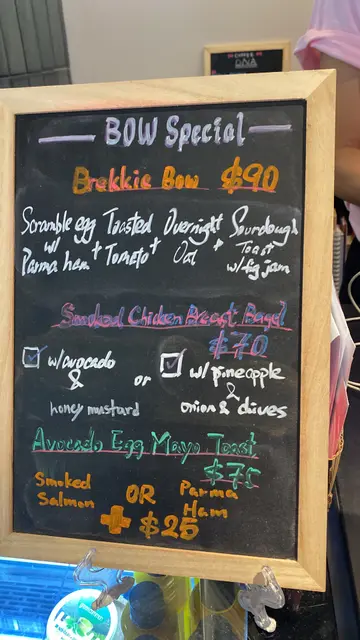 BOW Special
Brekkie Bow $90
Scramble egg Toasted Overnight Sourdough
w/ + Tomato + Oat + Toast
Parma ham w/ fig jam
Smoked Chicken Breast Bagel
$70
w/ avocado or w/ pineapple
& &
honey mustard onion & chives
Avocado Egg Mayo Toast
$75
Smoked OR Parma
Salmon Ham
+ $25